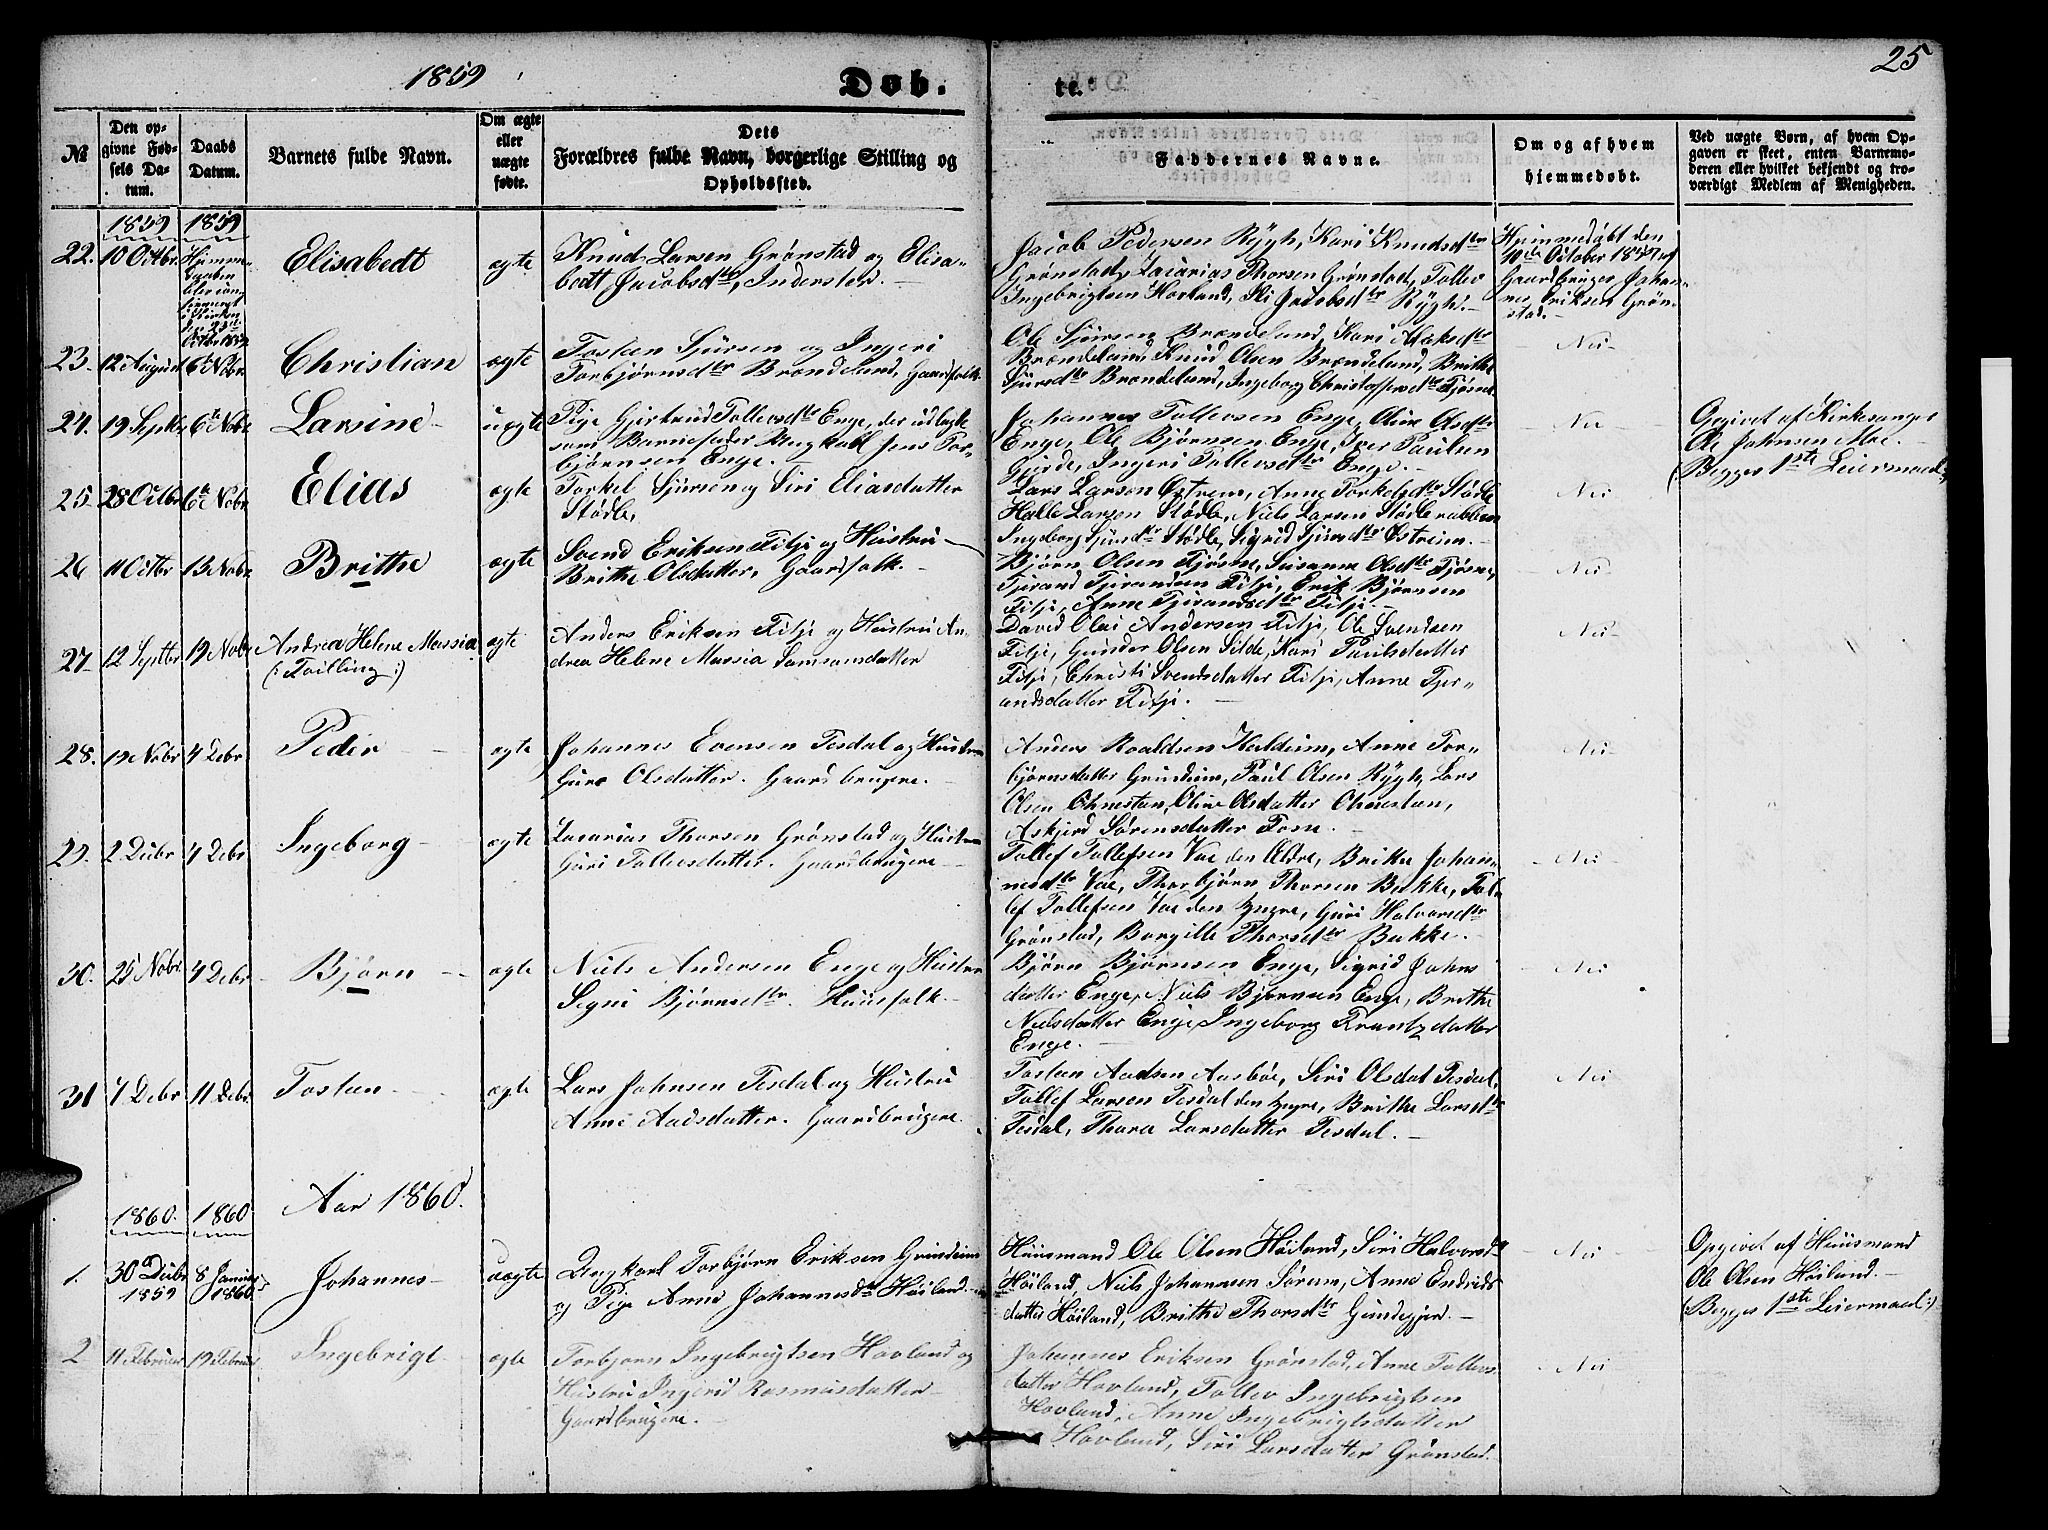 1859
Døb.
te.
25
№
Den op-
givne Fød-
sels Da-
tum.
Daabs
Datum.
Barnets fulde Navn.
Om ægte
eller
uægte
fødte.
Dets
Forældres fulde Navn, borgerlige Stilling og
Opholdssted.
Faddernes Navne.
Om og af hvem
hjemmedøbt.
Ved uægte Børn, af hvem Op-
gaven er skeet, enten Barnemo-
deren eller hvilket bekjendt og tro-
værdigt Medlem af Menigheden.
1859 1859
22. 10 Octbr.
Hjemme-
daaben
blev con-
firmeret
i Kirken
d. 23
Octbr 1859
Elisabedt
ægte
Knud Larsen Grønstad og Elisa-
bedt Jacobsdtr, Inderster.
Jacob Pedersen Rygh, Kari Knudsdtr
Grønstad, Zacarias Thorsen Grønstad, Tollev
Ingebrigtsen Hovland, Siri Jacobsdtr Rygh.
Hjemmedøbt den
10de October 1859 af
Gaardbruger Johan-
nes Eriksen Grøn-
stad.
23. 12 August 6te Nobr.
Christian
ægte
Tosten Sjursen og Ingeri
Torbjørnsdtr Brændeland, Gaardfolk
Ole Sjursen Brændeland, Kari Aslaksdtr
Brændeland, Knud Olsen Brændeland, Brithe
Sjursdtr Brændeland, Ingeborg Christophersdtr Fjøsne
Nei
24. 19 Septbr 6te Nobr
Larsine
uægte
Pige Gjertrud Tollevsdtr Enge, der udlagte
som Barnefader Ungkarl Jens Tor-
bjørnsen Enge.
Johannes Tollevsen Enge, Oline Olsdtr
Enge, Ole Bjørnsen Enge, Iver Paulsen
Gjerde, Ingeri Tollevsdtr Enge.
Nei
Opgivet af Kirkesanger
Ole Johnsen Moe.
(Begges 1ste Leiermaal:)
25. 28 Octbr 6te Nobr
Elias
ægte
Torkel Sjursen og Siri Eliasdatter
Stødle,
Lars Larsen Østrem, Anne Torkelsdtr Stødle
Halle Larsen Stødle, Niels Larsen Stødlerabben
Ingeborg Sjursdtr Stødle, Sigrid Sjursdtr Østreim.
Nei
26 11 Octbr 13 Nobr
Brithe
ægte
Svend Eriksen Fitji og Hustru
Brithe Olsdatter, Gaardfolk.
Bjørn Olsen Fjøsne, Susanne Olsdtr Fjøsne,
Tjerand Tjerandsen Fitji, Erik Bjørnsen
Fitji, Anne Tjerandsdtr Fitji.
Nei
27 12 Septbr 19 Nobr
Andrea Helene Massia
(:Tvilling:)
ægte
Anders Eriksen Fitje og Hustru An-
drea Helene Massia Samsonsdatter
David Olai Andersen Fitji, Ole Svendsen
Fitji, Gunder Olsen Silde, Kari Paulsdatter
Fitji, Christi Svendsdatter Fitji, Anne Tjer-
andsdatter Fitji.
Nei
28. 19 Nobr 4 Debr
Peder
ægte
Johannes Evensen Tesdal og Hustru
Guro Olsdatter. Gaardbrugere.
Anders Roaldsen Haldeim, Anne Tor-
bjørnsdatter Grindeim, Paul Olsen Rygh, Lars
Olsen Ohnestan, Oline Olsdatter Ohnestan,
Askjerd Sørensdatter Fosse.
Nei
29. 2 Debr 4 Debr
Ingeborg
ægte
Zacarias Thorsen Grønstad og Hustru
Guri Tollevsdatter. Gaardbrugere
Tollef Tollefsen Vae den Ældre, Brithe Johan-
nesdtr Vae, Thorbjørn Thorsen Bakke, Tol-
lef Tollefsen Vae den Yngre, Guri Halvorsdtr
Grønstad, Borgille Thorsdtr Bakke.
Nei
30. 25 Nobr. 4 Debr
Bjørn
ægte
Niels Andersen Enge og Hustru
Signi Bjørnsdtr. Huusfolk.
Bjørn Bjørnsen Enge, Sigrid Johns
datter Enge, Niels Bjørnsen Enge, Brithe
Nielsdatter Enge, Ingeborg Krantzdatter
Enge.
Nei
31 7 Debr 11 Debr
Tosten
ægte
Lars Johnsen Tesdal og Hustru
Anne Aadsdatter. Gaardbrugere.
Tosten Aadsen Aasbøe, Siri Olsdat Tesdal,
Tollef Larsen Tesdal den Yngre, Brithe Larsdtr
Tesdal, Thora Larsdatter Tesdal.
Nei
1860. 1860
Aar 1860.
1. 30 Debr 1859 8 Januar 1860
Johannes
uægte
Ungkarl Torbjørn Eriksen Grindeim
og Pige Anne Johannesdtr Høiland.
Huusmand Ole Olsen Høiland, Siri Halvorsdtr
Høiland, Niels Johannesen Sørum, Anne Endrids
datter Høiland, Brithe Thorsdtr Gundegjer.
Nei
Opgivet af Huusmand
Ole Olsen Høiland.
(Begges 1ste Leiermaal:)
2 11 Februar 19 Februar
Ingebrigt
ægte
Torbjørn Ingebrigtsen Hovland og
Hustru Ingerid Rasmusdatter
Gaardbrugere.
Johannes Eriksen Grønstad, Anne Tollevs
datter Hovland, Tollev Ingebrigtsen
Hovland, Anne Ingebrigtsdatter
Hovland, Siri Larsdatter Grønstad.
Nei